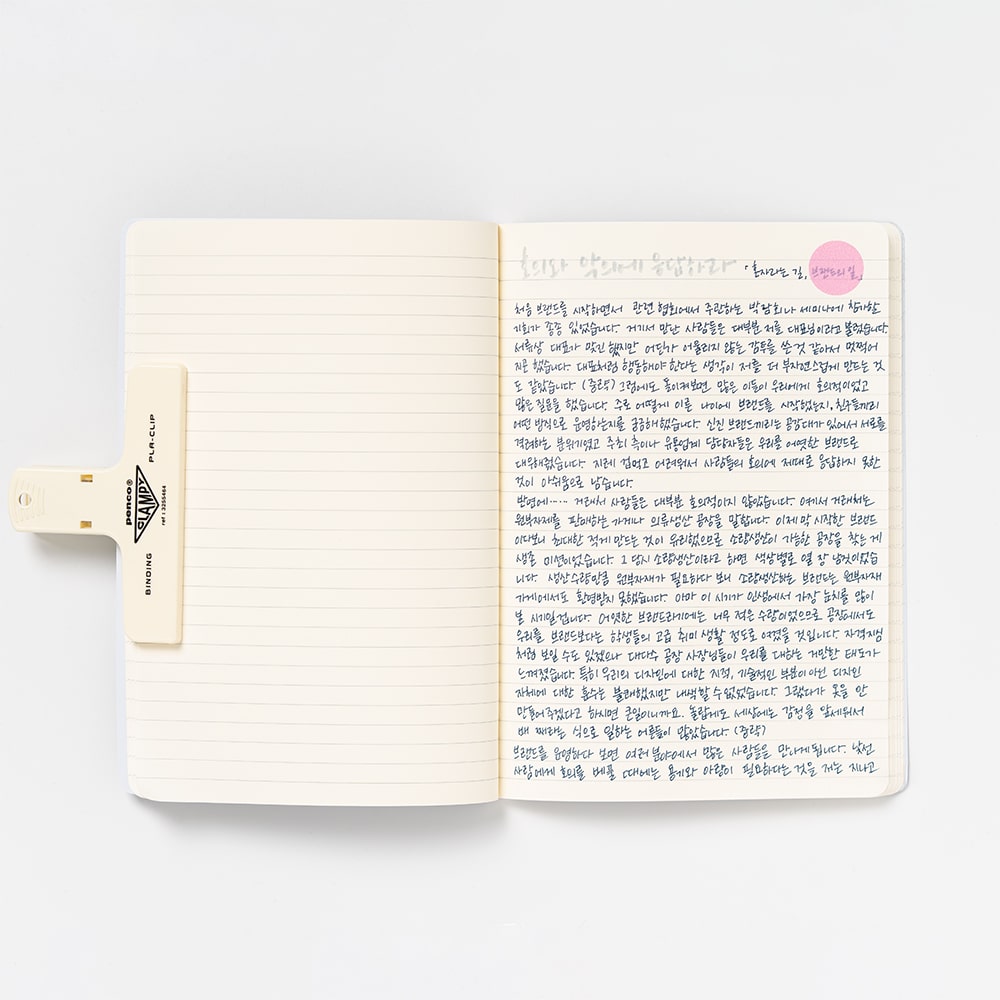 PLA-CLIP
penco®
CLAMPY
ref : 3255464
BINDING
호의와 악의에 응답하라 「혼자라는 길, 브랜드의 길」
처음 브랜드를 시작하면서 관련 협회에서 주관하는 박람회나 세미나에 참가할
기회가 종종 있었습니다. 거기서 만난 사람들은 대부분 저를 대표님이라고 불렀습니다.
서류상 대표가 맞긴 했지만 어딘가 어울리지 않는 감투를 쓴 것 같아서 멋쩍어
지곤 했습니다. 대표처럼 행동해야 한다는 생각이 저를 더 부자연스럽게 만드는 것
도 같았습니다. (중략) 그럼에도 돌이켜보면 많은 이들이 우리에게 호의적이었고
많은 질문을 했습니다. 주로 어떻게 이른 나이에 브랜드를 시작했는지, 친구들끼리
어떤 방식으로 운영하는지를 궁금해했습니다. 신진 브랜드끼리는 공감대가 있어서 서로를
격려하는 분위기였고 주최 측이나 유통업계 담당자들은 우리를 어엿한 브랜드로
대우해줬습니다. 지레 겁먹고 어려워서 사람들의 호의에 제대로 응답하지 못한
것이 아쉬움으로 남습니다.
반면에…… 거래처 사람들은 대부분 호의적이지 않았습니다. 여기서 거래처는
원부자재를 판매하는 가게나 의류생산 공장을 말합니다. 이제 막 시작한 브랜드
이다보니 최대한 적게 만드는 것이 유리했으므로 소량생산이 가능한 공장을 찾는 게
생존 미션이었습니다. 그 당시 소량생산이라고 하면 색상별로 열 장 남짓이었습
니다. 생산수량만큼 원부자재가 필요하다 보니 소량생산하는 브랜드는 원부자재
가게에서도 환영받지 못했습니다. 아마 이 시기가 인생에서 가장 눈치를 많이
볼 시기일겁니다. 어엿한 브랜드라기에는 너무 적은 수량이었으므로 공장에서도
우리를 브랜드보다는 학생들의 고급 취미 생활 정도로 여겼을 것입니다. 자격지심
처럼 보일 수도 있겠으나 대다수 공장 사장님들이 우리를 대하는 거만한 태도가
느껴졌습니다. 특히 우리의 디자인에 대한 지적, 기술적인 부분이 아닌 디자인
자체에 대한 훈수는 불쾌했지만 내색할 수 없었습니다. 그랬다가 옷을 안
만들어주겠다고 하시면 큰일이니까요. 놀랍게도 세상에는 감정을 앞세워서
배 째라는 식으로 일하는 어른들이 많았습니다. (중략)
브랜드를 운영하다 보면 여러 분야에서 많은 사람들을 만나게 됩니다. 낯선
사람에게 호의를 베풀 때에는 용기와 아량이 필요하다는 것을 저는 지나고